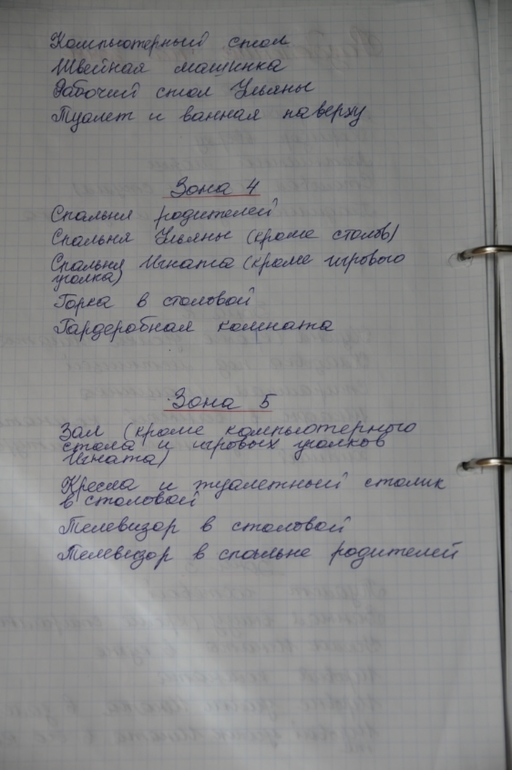 Компьютерный стол
Швейная машинка
Рабочий стол Ульяны
Туалет и ванная наверху
Зона 4
Спальня родителей
Спальня Ульяны (кроме столов)
Спальня Игната (кроме игрового
уголка)
Горка в столовой
Гардеробная комната
Зона 5
Зал (кроме компьютерного
стола и игровых уголков
Игната)
Кресла и туалетный столик
в столовой
Телевизор в столовой
Телевизор в спальне родителей